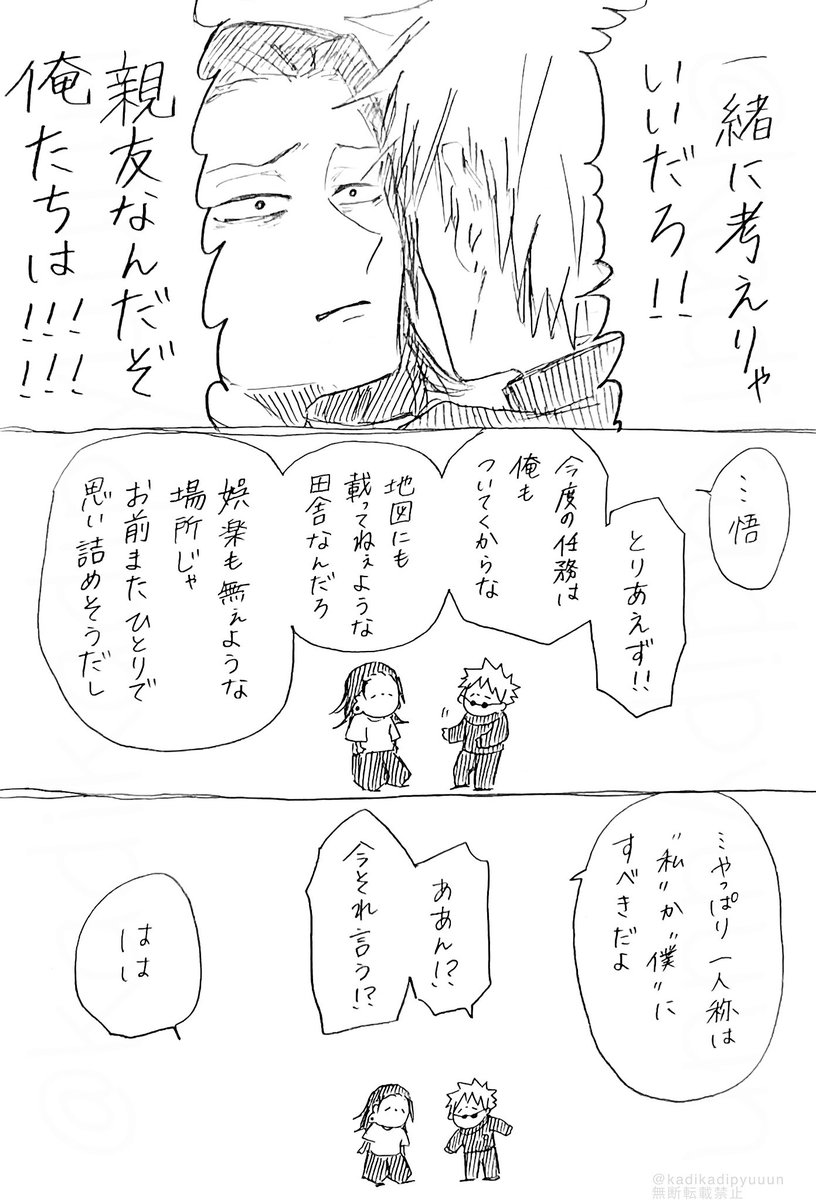 一緒に考えりゃ
いいだろ!!
親友なんだぞ
俺たちは!!!!!!
…悟
とりあえず!!
今度の任務は
俺も
ついてくからな
地図にも
載ってねぇような
田舎なんだろ
娯楽も無ぇような
場所じゃ
お前またひとりで
思い詰めそうだし
…やっぱり一人称は
"私"か"僕"に
すべきだよ
ああん!?
今それ言う!?
はは
@kadikadipyuuun
無断転載禁止